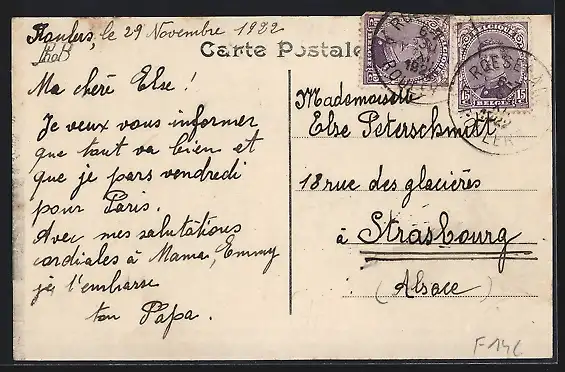 Roulers, le 29 Novembre 1922
Carte Postale
Ma chère Else !
Je veux vous informer
que tout va bien et
que je pars vendredi
pour Paris.
Avec mes salutations
cordiales à Mama, Emmy
je t'embrasse
ton Papa.
Mademoiselle
Else Peterschmitt
18 rue des glacières
à Strasbourg
(Alsace)
BELGIE
15
F 14€